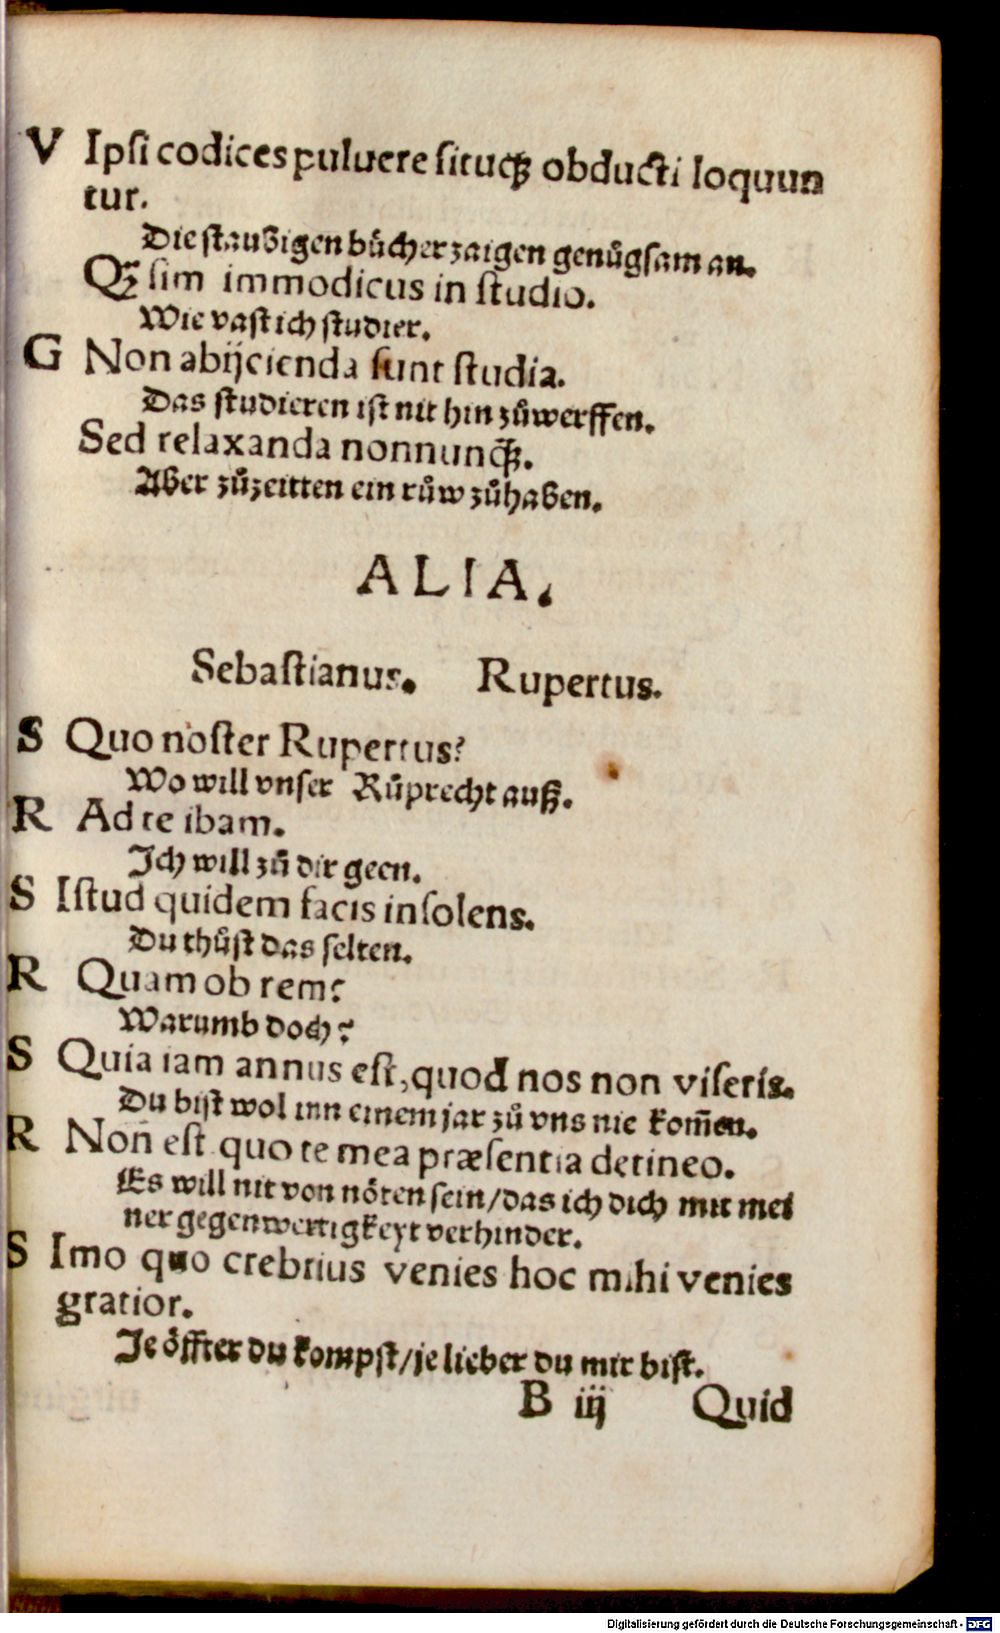 V Ipsi codices puluere situqꝫ obducti loquun
tur.
Die staubigen bücher zaigen genůgsam an.
Qꝫ sim immodicus in studio.
Wie vast ich studier.
G Non abijcienda sunt studia.
Das studieren ist nit hin zůwerffen.
Sed relaxanda nonnunqꝫ.
Aber zůzeitten ein růw zůhaben.
ALIA.
Sebastianus. Rupertus.
S Quo noster Rupertus?
Wo will vnser Růprecht auß.
R Ad te ibam.
Ich will zů dir geen.
S Istud quidem facis insolens.
Du thůst das selten.
R Quam ob rem?
Warumb doch?
S Quia iam annus est, quod nos non viseris.
Du bist wol inn einem jar zů vns nie kom̃en.
R Non est quo te mea præsentia detineo.
Es will nit von nöten sein/das ich dich mit mei
ner gegenwertigkeyt verhinder.
S Imo quo crebrius venies hoc mihi venies
gratior.
Je öffter du kompst/je lieber du mir bist.
B iij Quid
Digitalisierung gefördert durch die Deutsche Forschungsgemeinschaft - DFG